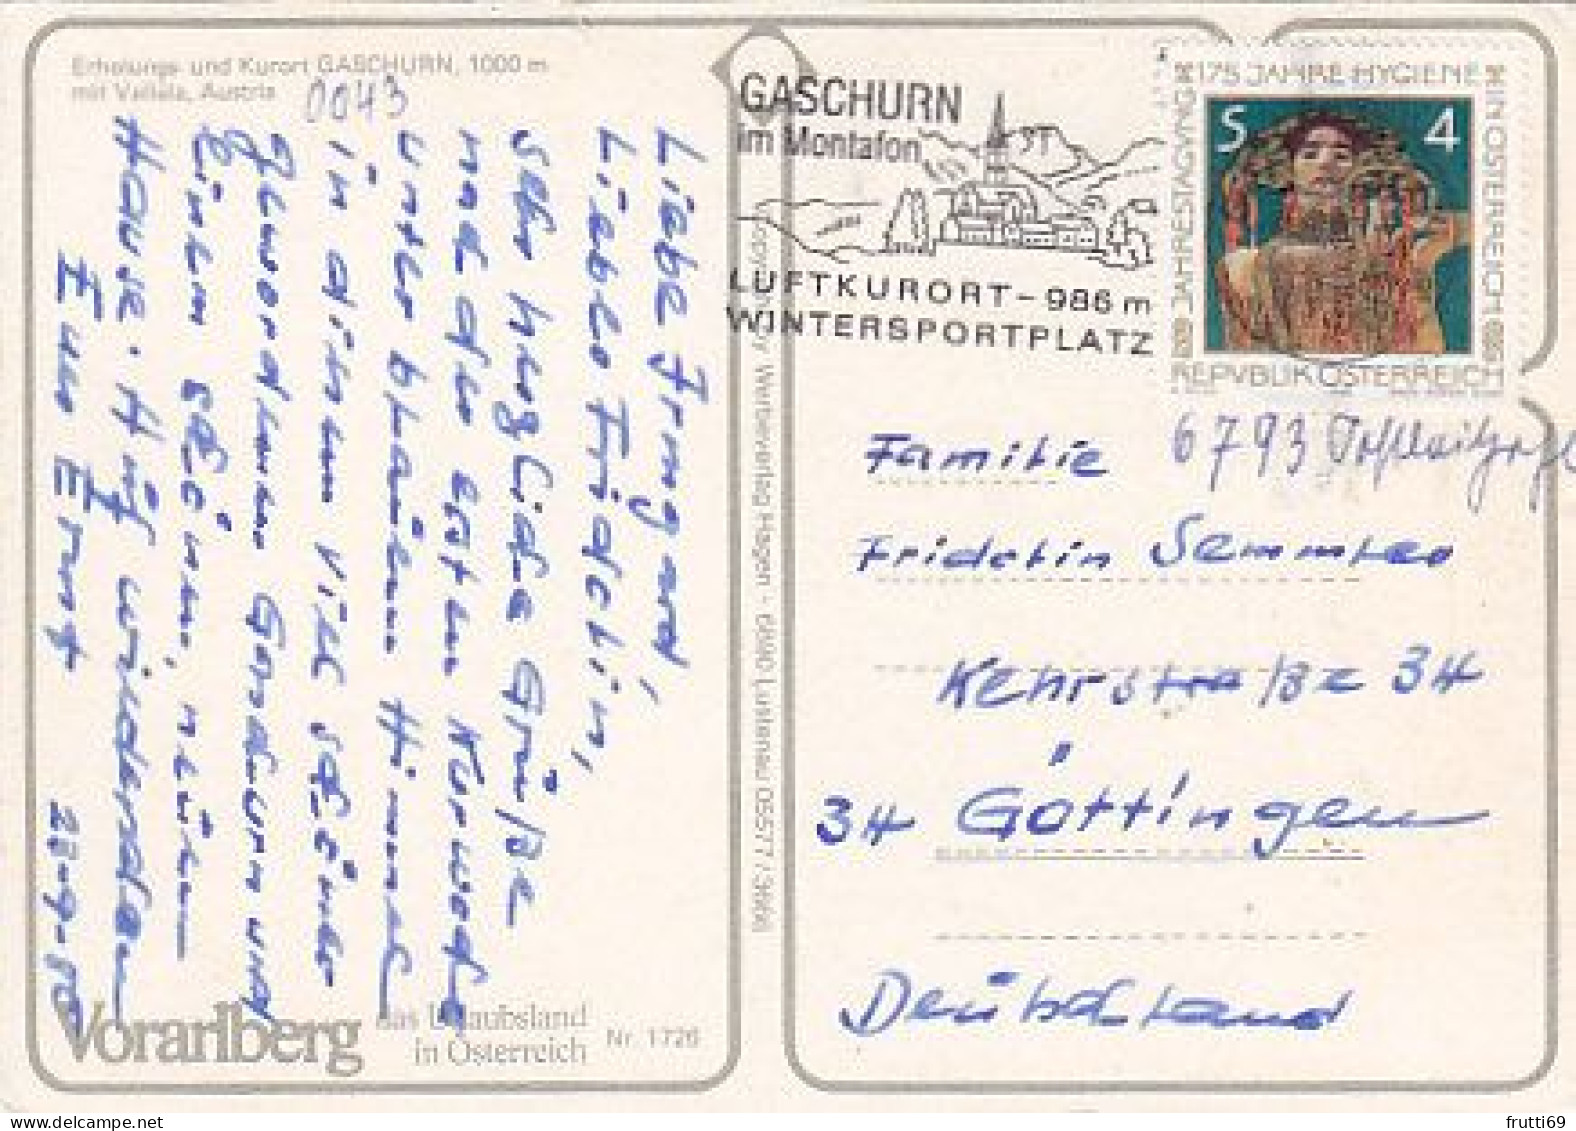 Erholungs- und Kurort GASCHURN, 1000 m
mit Vallüla, Austria
0043
Liebe Irmgard,
Lieber Fridolin,
sehr herzliche Grüße
nach der ersten Kurwoche
unter blauem Himmel
in einem viel schöner
gewordenem Gaschurn und
einem schönen, neuen
Hause. Auf wiedersehen
Euer Ernst
GASCHURN
im Montafon
LUFTKURORT - 986 m
WINTERSPORTPLATZ
175 JAHRE HYGIENE
IN ÖSTERREICH
JAHRESTAGVNG
S 4
REPVBLIK ÖSTERREICH
6793
Familie
Fridolin Semmler
Kehrstraße 34
34 Göttingen
Deutschland
Copyright by Werbeverlag Hagen - 6890 Lustenau 05577/3666
Vorarlberg
das Urlaubsland
in Österreich
Nr. 1726
frutti69